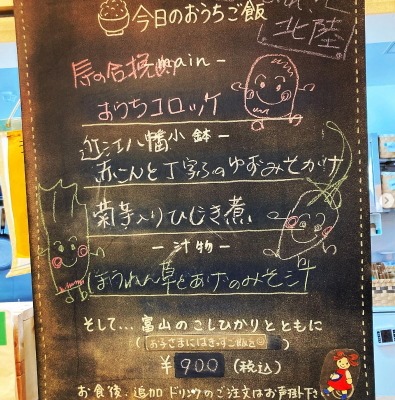 今日のおうちご飯
北陸
春の合挽 main -
おうちコロッケ
近江八幡小鉢 -
赤こんと丁字ふのゆずみそがけ
菊芋入りひじき煮
- 汁物 -
ほうれん草とあげのみそ汁
そして... 富山のこしひかりとともに
¥900(税込)
お食後、追加ドリンクのご注文はお声掛け下さい